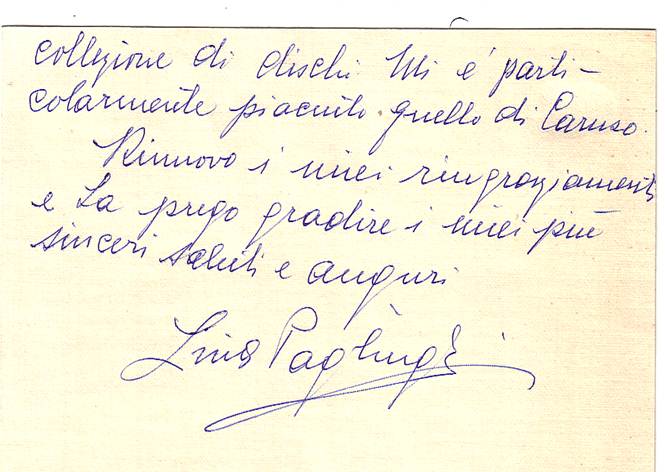 collezione di dischi. Mi è parti-
colarmente piaciuto quello di Caruso.
Rinnovo i miei ringraziamenti
e La prego gradire i miei più
sinceri saluti e auguri
Lina Pagliughi